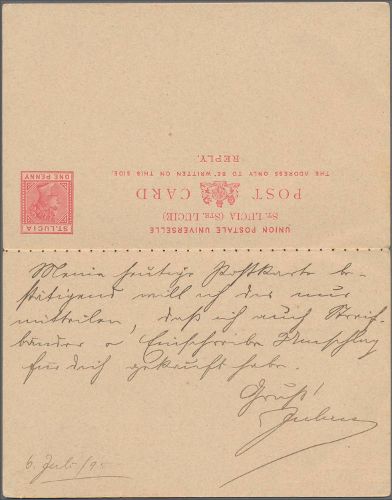 UNION POSTALE UNIVERSELLE
ST. LUCIA (STE. LUCIE)
POST CARD
THE ADDRESS ONLY TO BE WRITTEN ON THIS SIDE.
REPLY.
ST. LUCIA
ONE PENNY
Meine heutige Postkarte be-
stätigend will ich dir nur
mitteilen, daß ich auch Streif-
bänder & Einschreibe Umschlag
für dich gekauft habe.
Gruß!
6. Juli